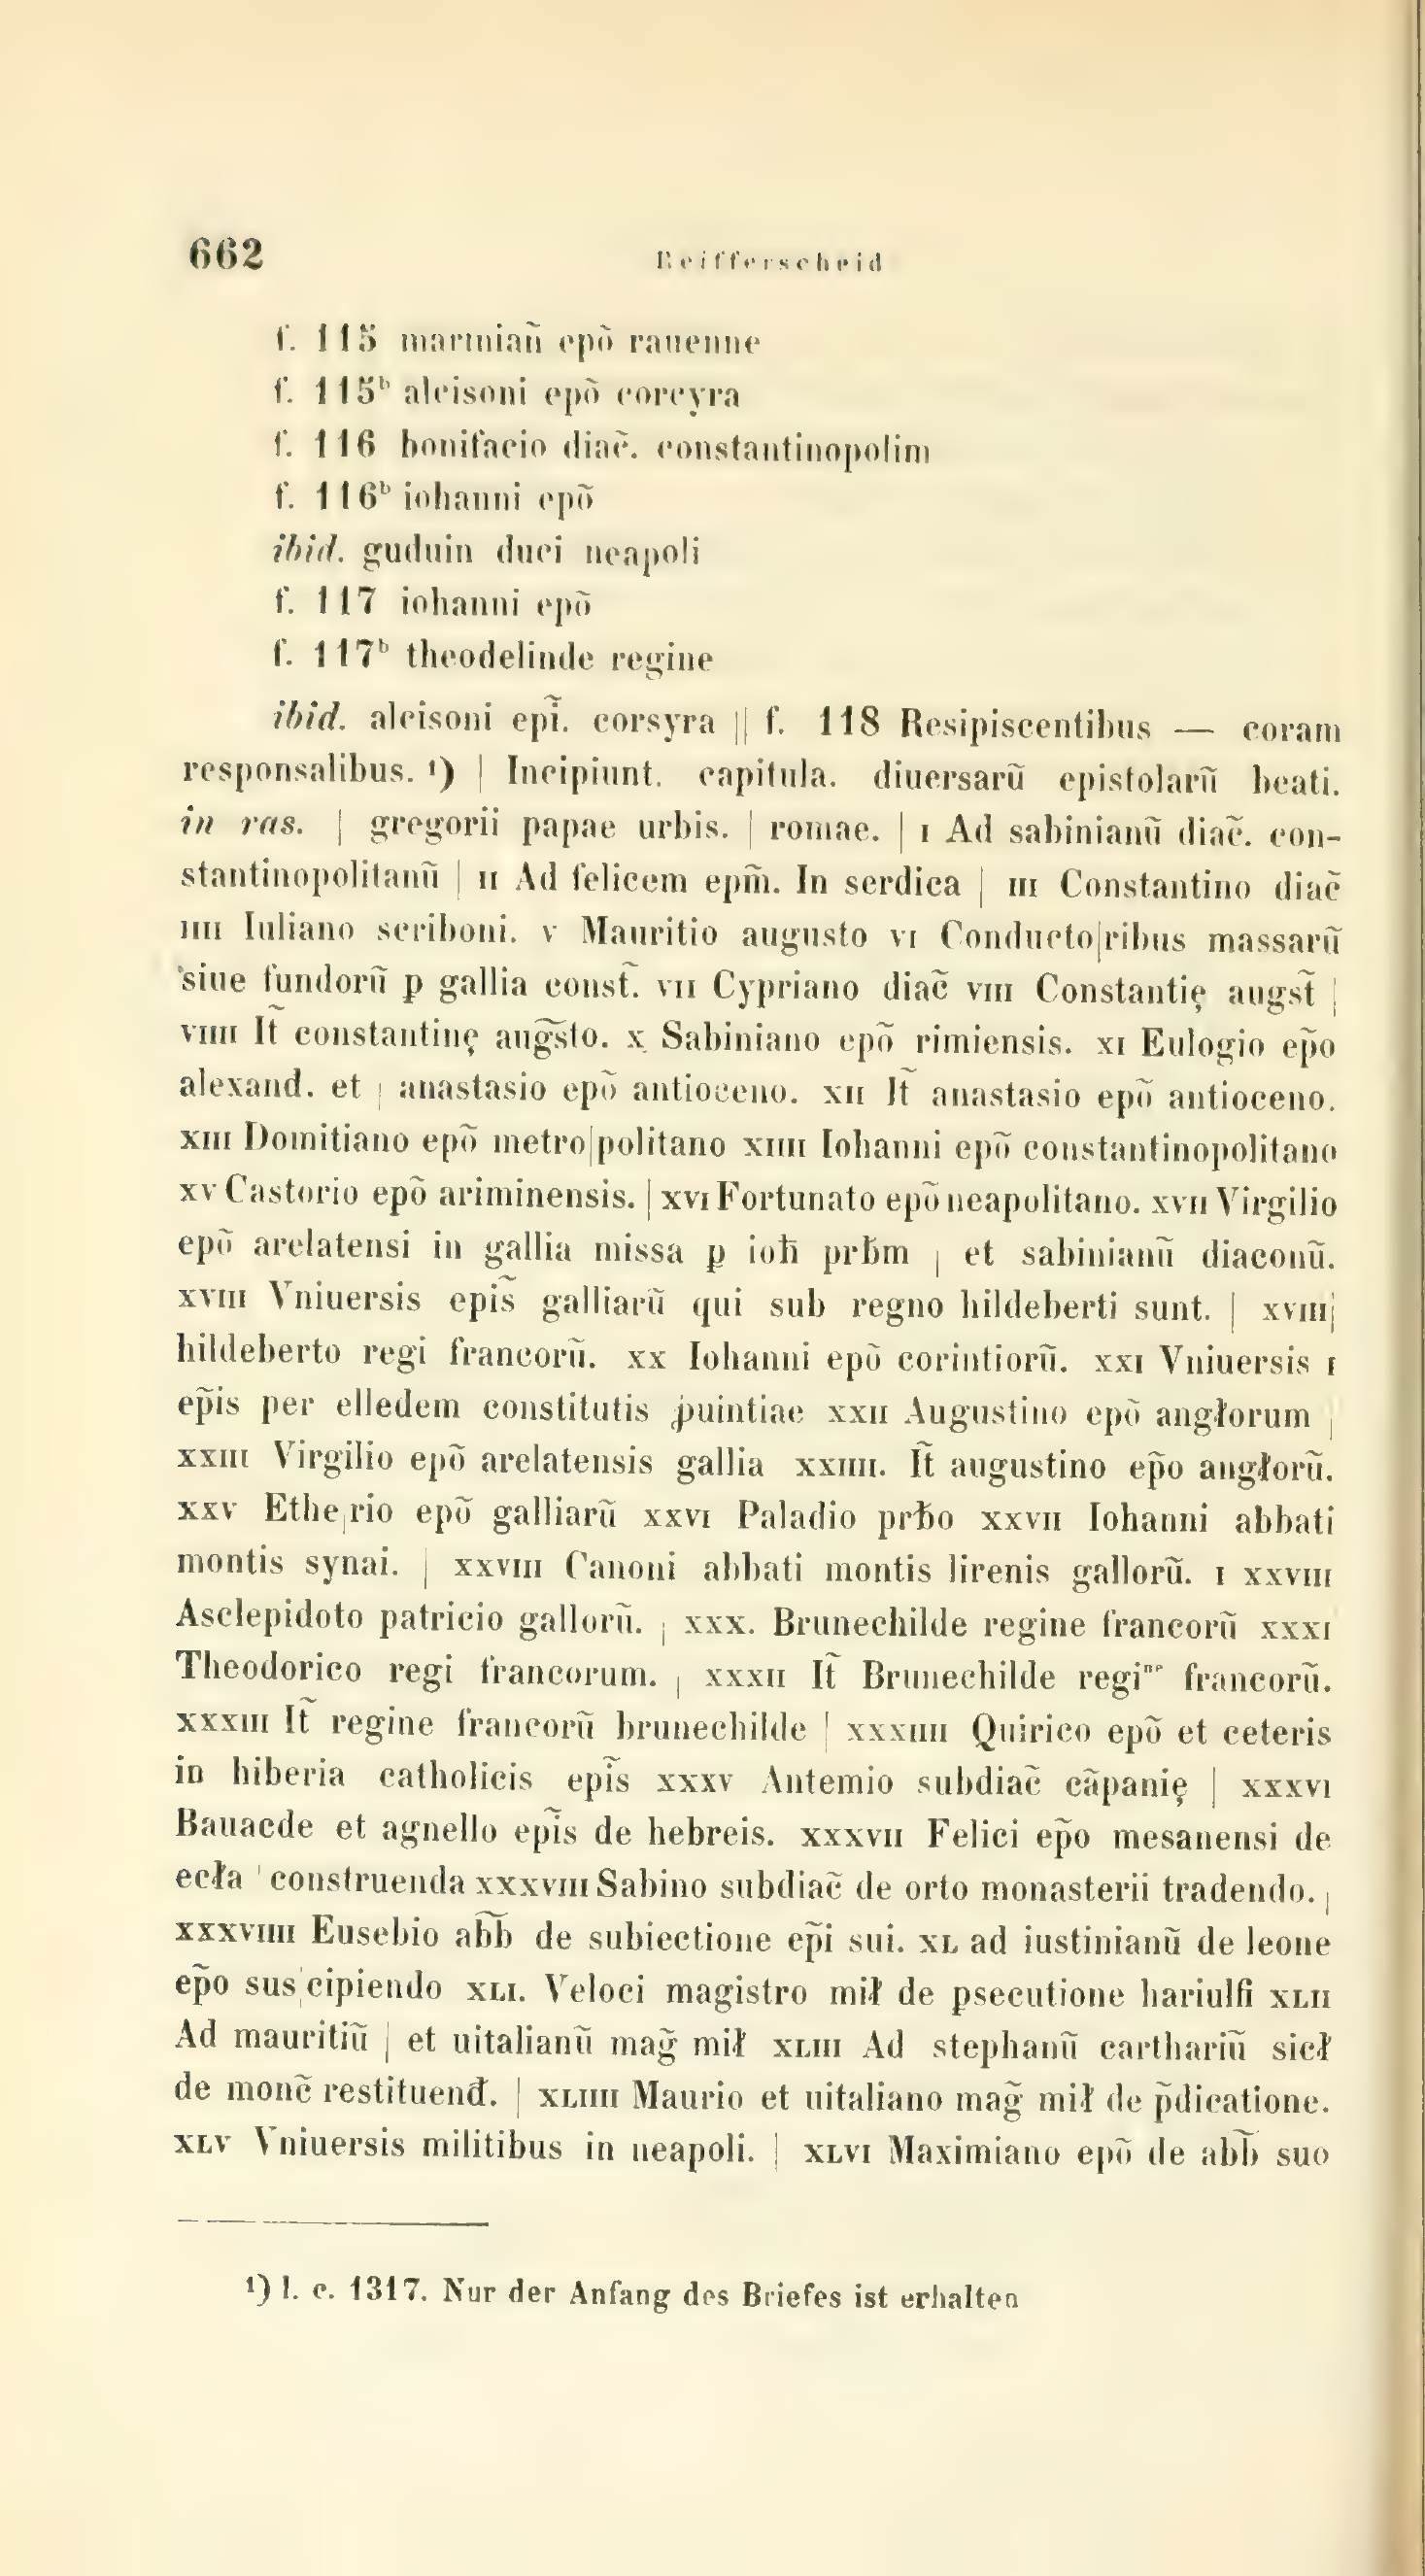 662 Reifferscheid
f. 115 marinian̄ epō rauenne
f. 115ᵇ alcisoni epō corcyra
f. 116 bonifacio diac̄. constantinopolim
f. 116ᵇ iohanni epō
ibid. guduin duci neapoli
f. 117 iohanni epō
f. 117ᵇ theodelinde regine
ibid. alcisoni epī. corsyra || f. 118 Resipiscentibus — coram
responsalibus. ¹) | Incipiunt. capitula. diuersarū epistolarū beati.
in ras. | gregorii papae urbis. | romae. | ɪ Ad sabinianū diac̄. con-
stantinopolitanū | ɪɪ Ad felicem epm̄. In serdica | ɪɪɪ Constantino diac̄
ɪɪɪɪ Iuliano scriboni. v Mauritio augusto vɪ Conducto|ribus massarū
siue fundorū ꝑ gallia const̄. vɪɪ Cypriano diac̄ vɪɪɪ Constantię augst̄ |
vɪɪɪɪ It̄ constantinę augs̄to. x Sabiniano epō rimiensis. xɪ Eulogio ep̄o
alexand. et | anastasio epō antioceno. xɪɪ It̄ anastasio epō antioceno.
xɪɪɪ Domitiano epō metro|politano xɪɪɪɪ Iohanni epō constantinopolitano
xv Castorio epō ariminensis. | xvɪ Fortunato epō neapolitano. xvɪɪ Virgilio
epō arelatensi in gallia missa ꝑ ioħ prƀm | et sabinianū diaconū.
xvɪɪɪ Vniuersis epis̄ galliarū qui sub regno hildeberti sunt. | xvɪɪɪɪ
hildeberto regi francorū. xx Iohanni epō corintiorū. xxɪ Vniuersis ɪ
ep̄is per elledem constitutis ꝓuintiae xxɪɪ Augustino epō angłorum |
xxɪɪɪ Virgilio epō arelatensis gallia xxɪɪɪɪ. It̄ augustino ep̄o angłorū.
xxv Ethe|rio epō galliarū xxvɪ Paladio prƀo xxvɪɪ Iohanni abbati
montis synai. | xxvɪɪɪ Canoni abbati montis lirenis gallorū. ɪ xxvɪɪɪɪ
Asclepidoto patricio gallorū. | xxx. Brunechilde regine francorū xxxɪ
Theodorico regi francorum. | xxxɪɪ It̄ Brunechilde regiⁿᵉ francorū.
xxxɪɪɪ It̄ regine francorū brunechilde | xxxɪɪɪɪ Quirico epō et ceteris
in hiberia catholicis epīs xxxv Antemio subdiac̄ cāpanię | xxxvɪ
Bauacde et agnello epīs de hebreis. xxxvɪɪ Felici ep̄o mesanensi de
ecła | construenda xxxvɪɪɪ Sabino subdiac̄ de orto monasterii tradendo. |
xxxvɪɪɪɪ Eusebio ab̄b̄ de subiectione ep̄i sui. xʟ ad iustinianū de leone
ep̄o sus|cipiendo xʟɪ. Veloci magistro mił de psecutione hariulfi xʟɪɪ
Ad mauritiū | et uitalianū mag̃ mił xʟɪɪɪ Ad stephanū carthariū sicł
de monc̄ restituenđ. | xʟɪɪɪɪ Maurio et uitaliano mag̃ mił de p̄dicatione.
xʟv Vniuersis militibus in neapoli. | xʟvɪ Maximiano epō de ab̄b̄ suo
¹) l. c. 1317. Nur der Anfang des Briefes ist erhalten